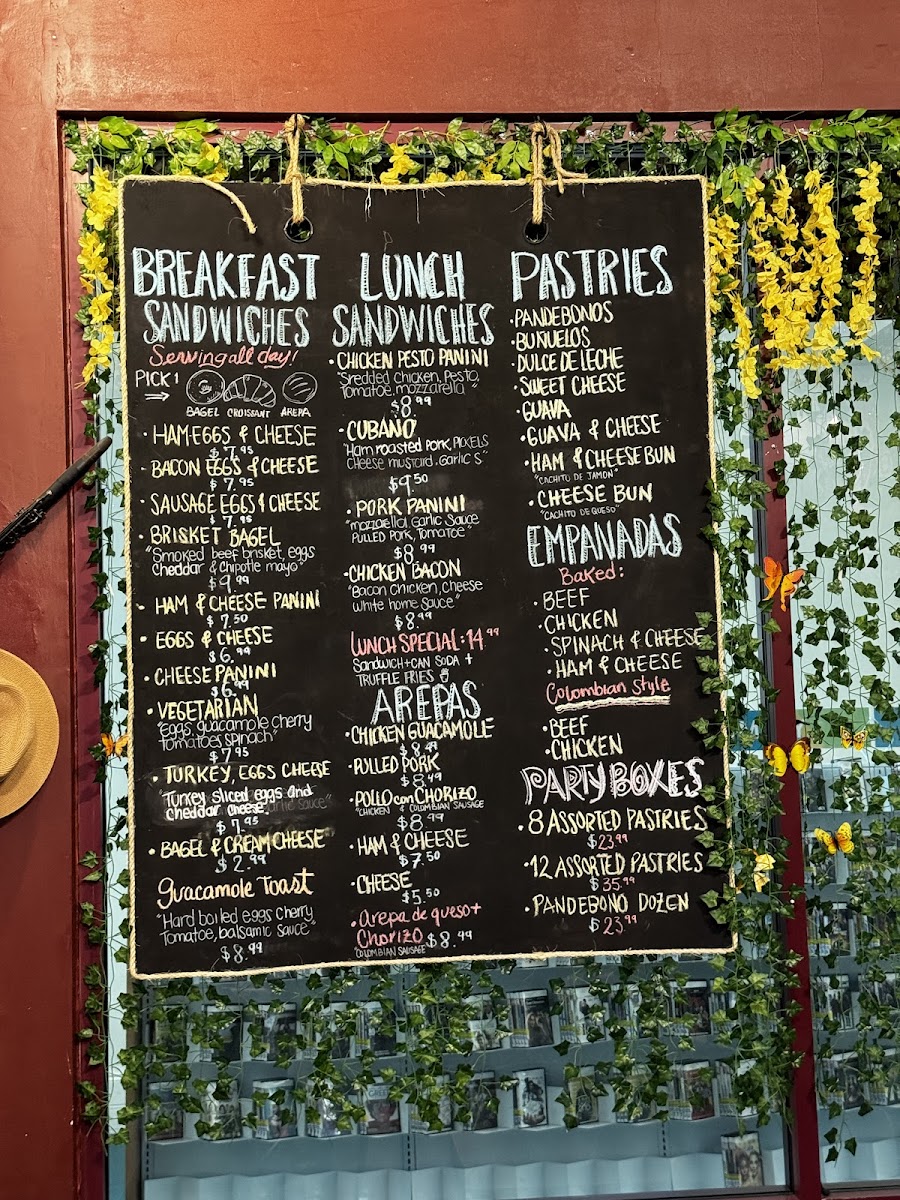 BREAKFAST
SANDWICHES
Serving all day!
PICK 1
BAGEL CROISSANT AREPA
· HAM EGGS & CHEESE
$7.95
· BACON EGGS & CHEESE
$7.95
· SAUSAGE EGGS & CHEESE
$7.95
· BRISKET BAGEL
"Smoked beef brisket, eggs
Cheddar & Chipotle mayo"
$9.99
· HAM & CHEESE PANINI
$7.50
· EGGS & CHEESE
$6.99
· CHEESE PANINI
$6.99
· VEGETARIAN
"Eggs, guacamole cherry
Tomatoes, spinach"
$7.95
· TURKEY, EGGS CHEESE
"Turkey sliced eggs and
cheddar cheese"
$7.95
· BAGEL & CREAM CHEESE
$2.99
guacamole Toast
"Hard boiled eggs cherry,
Tomatoe, balsamic sauce"
$8.99
LUNCH
SANDWICHES
· CHICKEN PESTO PANINI
"Sredded chicken, Pesto,
Tomatoe, mozzarella"
$8.99
· CUBANO
"Ham roasted pork, PICKELS
cheese mustard. Garlic S"
$9.50
· PORK PANINI
"mozzarella, Garlic Sauce
PULLED PORK, TOMATOE"
$8.99
· CHICKEN BACON
"Bacon Chicken, Cheese
white home Sauce"
$8.99
LUNCH SPECIAL: 14.99
SANDWICH + CAN SODA +
TRUFFLE FRIES
AREPAS
· CHICKEN GUACAMOLE
$8.49
· PULLED PORK
$8.49
· POLLO con CHORIZO
"CHICKEN & COLOMBIAN SAUSAGE
$8.99
· HAM & CHEESE
$7.50
· CHEESE
$5.50
· Arepa de queso +
Chorizo $8.99
COLOMBIAN SAUSAGE
PASTRIES
· PANDEBONOS
· BUÑUELOS
· DULCE DE LECHE
· SWEET CHEESE
· GUAVA
· GUAVA & CHEESE
· HAM & CHEESE BUN
"CACHITO DE JAMON"
· CHEESE BUN
"CACHITO DE QUESO"
EMPANADAS
Baked:
· BEEF
· CHICKEN
· SPINACH & CHEESE
· HAM & CHEESE
Colombian Style
· BEEF
· CHICKEN
PARTY BOXES
· 8 ASSORTED PASTRIES
$23.99
· 12 ASSORTED PASTRIES
$35.99
· PANDEBONO DOZEN
$23.99